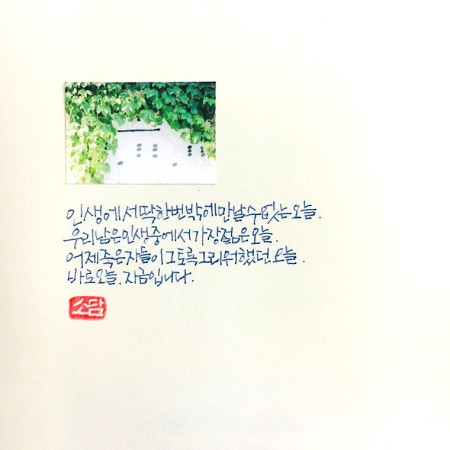 인생에서 딱 한번밖에 만날수 없는 오늘.
우리 남은 인생중에서 가장 젊은 오늘.
어제 죽은자들이 그토록 그리워했던 오늘.
바로 오늘. 지금입니다.
소담